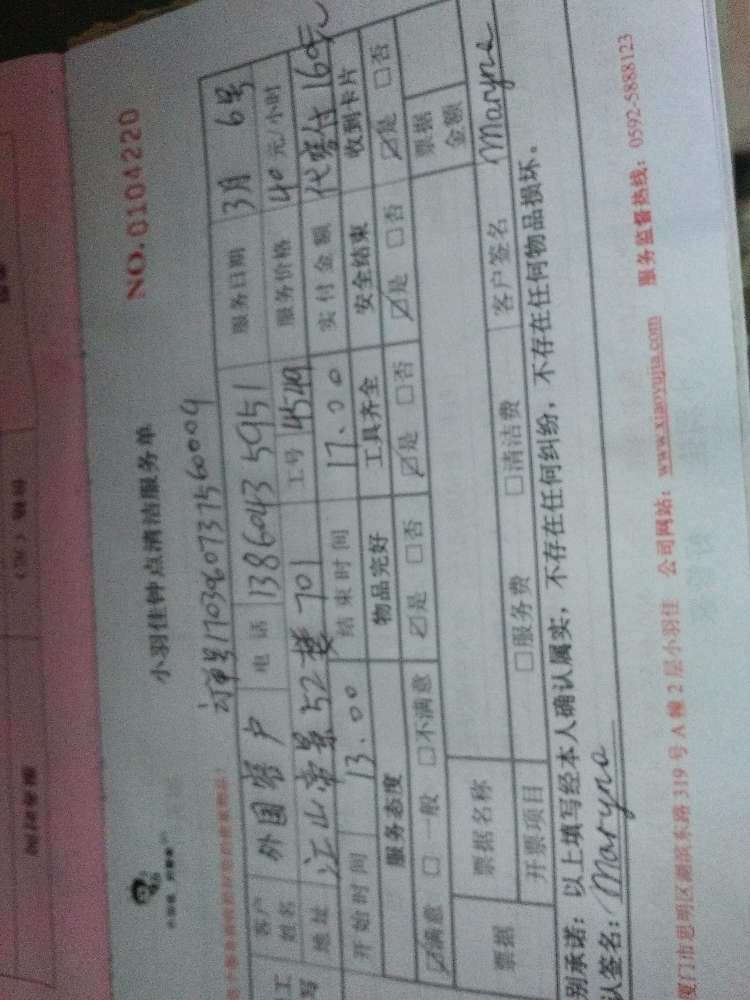 NO.0104220
小羽佳钟点清洁服务单
客户姓名 外国客户 电话 13860435951 服务日期 3月 6号
地址 江山帝景52楼701 工号 4549 服务价格 40元/小时
开始时间 13.00 结束时间 17.00 实付金额 代客付160元
服务态度 物品完好 工具齐全 安全结束 收到卡片
☑满意 □一般 □不满意 ☑是 □否 ☑是 □否 ☑是 □否 ☑是 □否
票据 票据名称 票据金额
开票项目 □服务费 □清洁费 客户签名 Maryna
别承诺:以上填写经本人确认属实,不存在任何纠纷,不存在任何物品损坏。
认签名: Maryna
厦门市思明区湖滨东路 319 号 A 幢 2 层小羽佳 公司网站:www.xiaoyujia.com 服务监督热线:0592-5888123